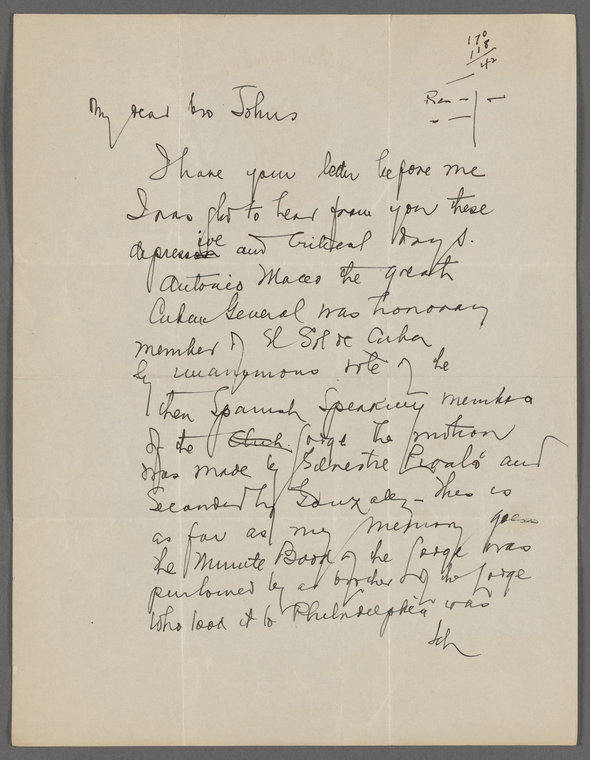 170
118
42
My dear bro Johns
I have your letter before me
I was glad to hear from you these
depressive and Critical days.
Antonio Maceo the great
Cuban General was honorary
member of El Sol de Cuba
by unanymous vote of the
then Spanish Speaking members
of the Club Lodge the motion
was made by Silvestre Pivaló and
Seconded by Gonzalez - This is
as far as my memory goes
The Minute Book of the Lodge was
purloined by a brother of the Lodge
who took it to Philadelphia was